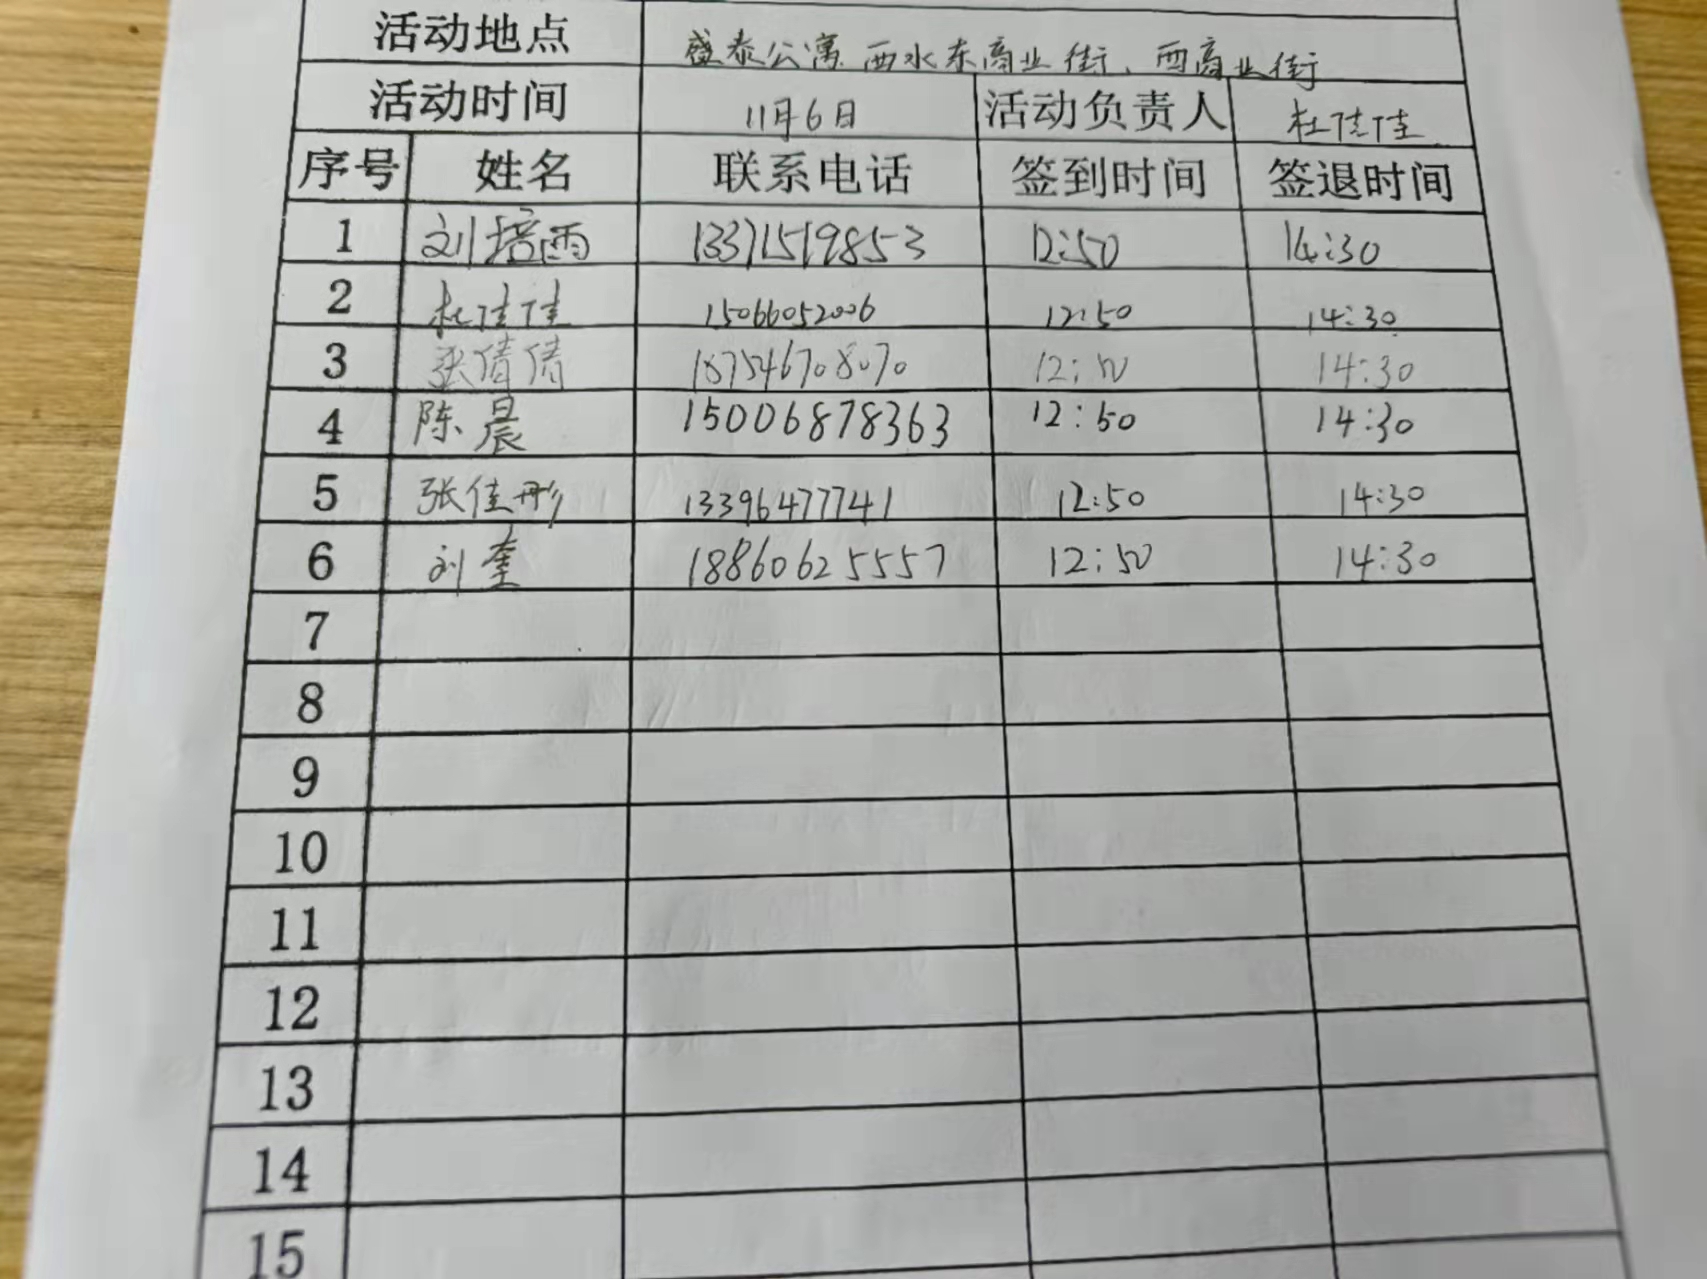 活动地点 盛泰公寓 西水东商业街、西商业街
活动时间 11月6日 活动负责人 杜佳佳
序号 姓名 联系电话 签到时间 签退时间
1 刘培雨 13371519853 12:50 14:30
2 杜佳佳 15066052006 12:50 14:30
3 张倩倩 187546708070 12:50 14:30
4 陈晨 15006878363 12:50 14:30
5 张佳彤 13396477741 12:50 14:30
6 刘奎 18860625557 12:50 14:30
7
8
9
10
11
12
13
14
15